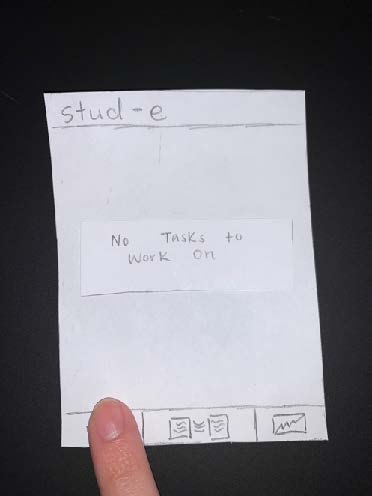 stud-e
No Tasks to
Work on